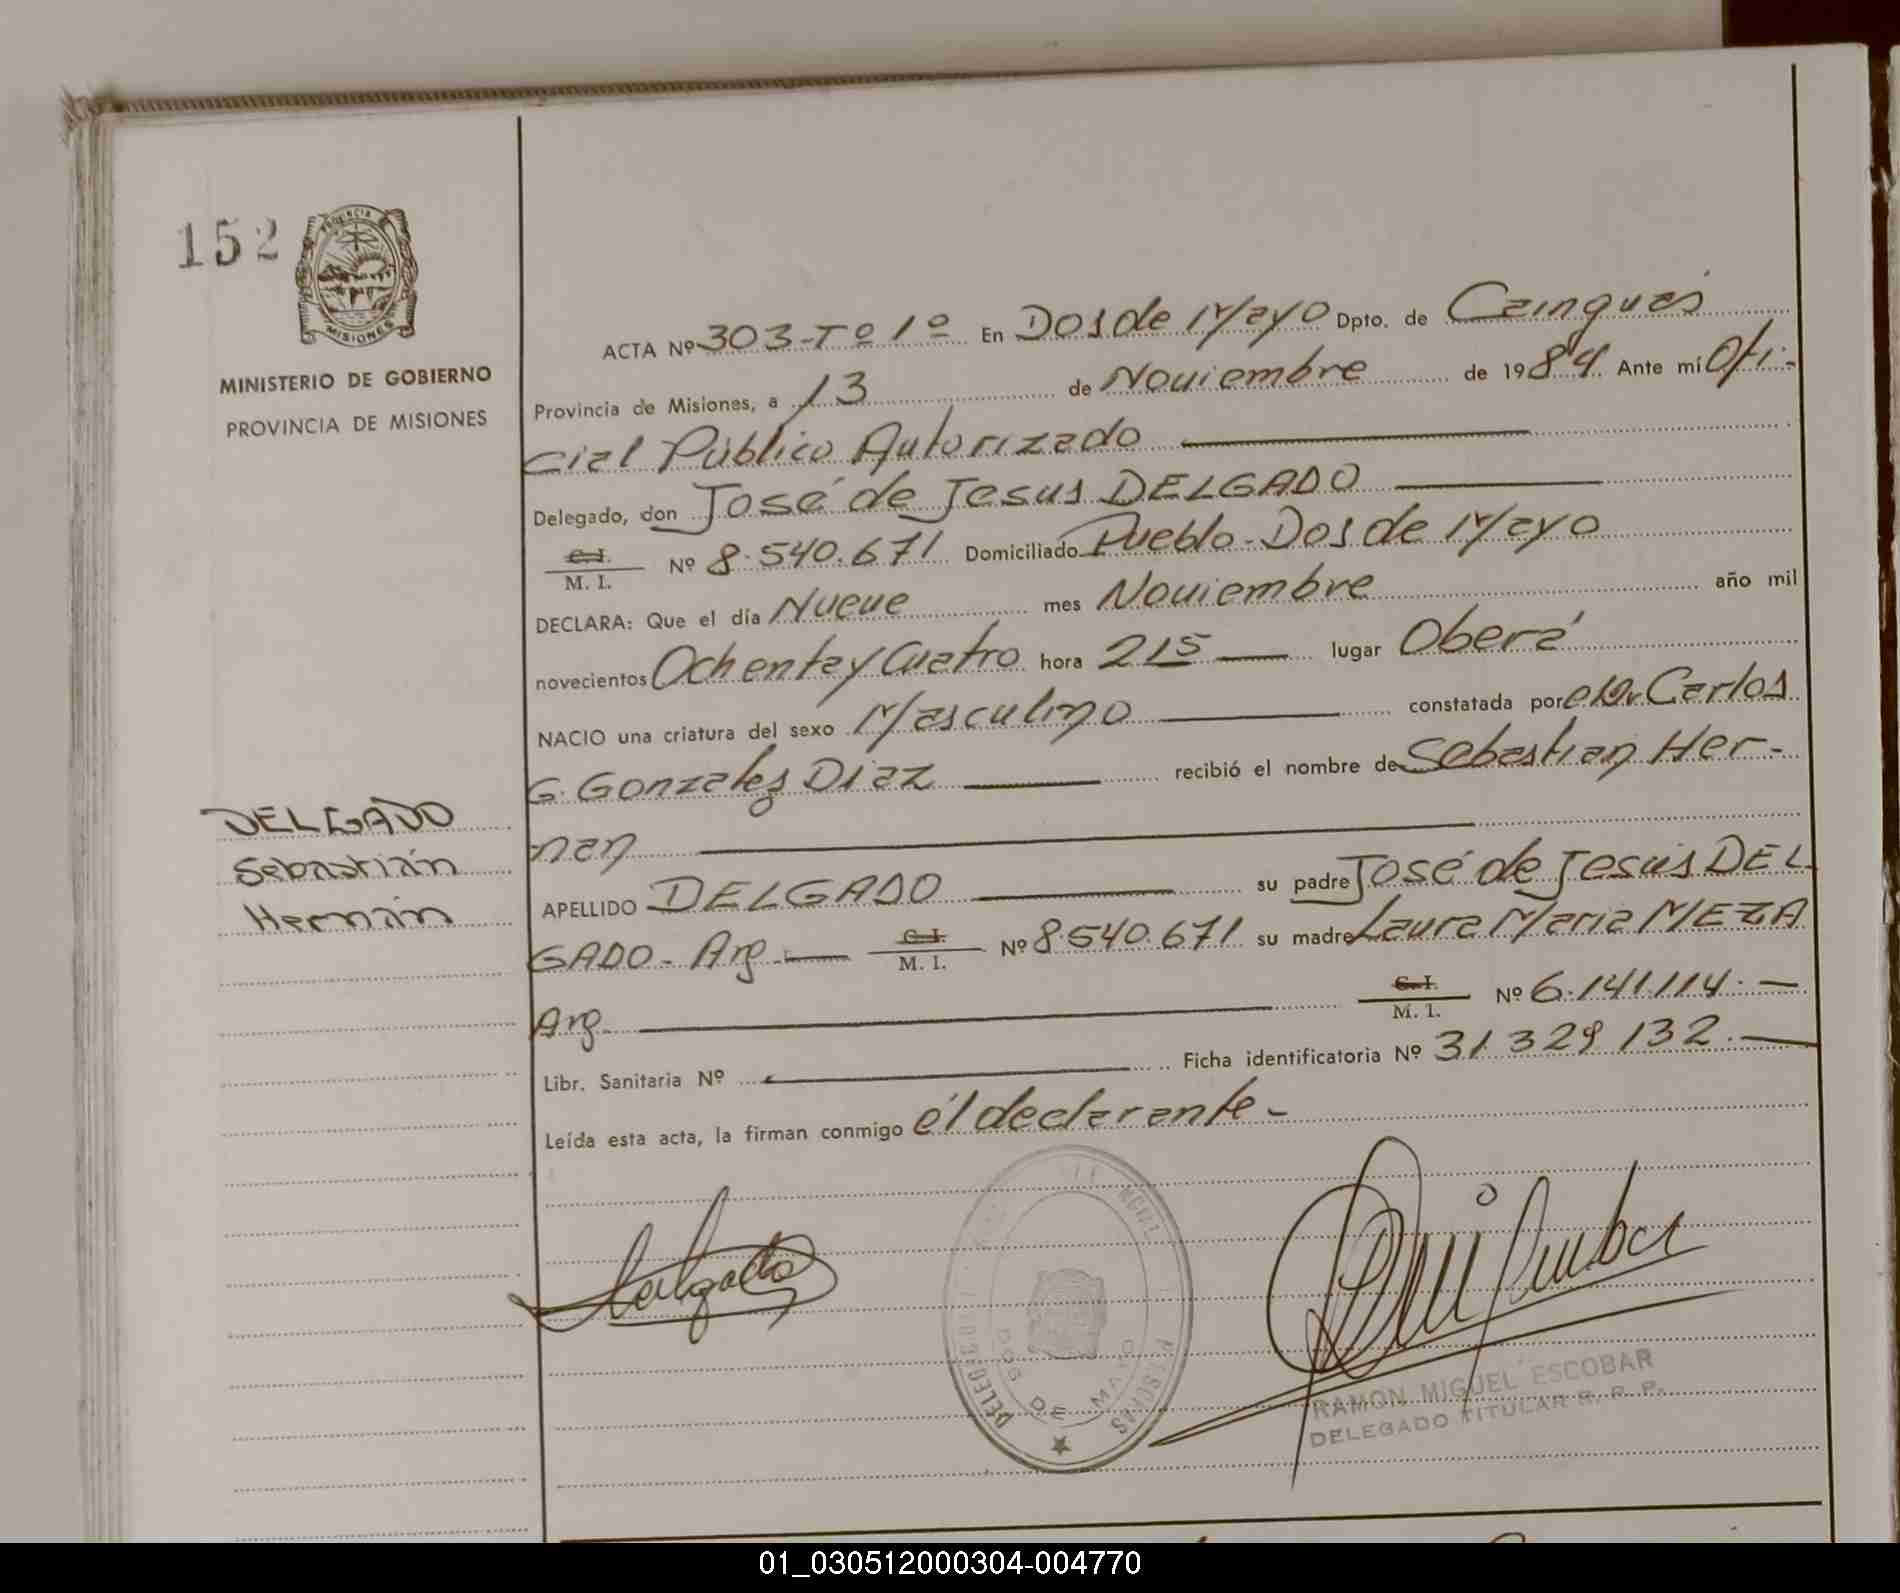 152
PROVINCIA DE
MISIONES
MINISTERIO DE GOBIERNO
PROVINCIA DE MISIONES
DELGADO
Sebastián
Hernán
ACTA Nº 303-Tº 1º En Dos de Mayo Dpto. de Cainguás
Provincia de Misiones, a 13 de Noviembre de 1984. Ante mí Ofi-
cial Público Autorizado
Delegado, don José de Jesus DELGADO
C.I.
M. I. Nº 8.540.671 Domiciliado Pueblo-Dos de Mayo
DECLARA: Que el día Nueve mes Noviembre año mil
novecientos Ochenta y Cuatro hora 215 lugar Oberá
NACIO una criatura del sexo Masculino constatada por el Dr Carlos
G. Gonzales Diaz recibió el nombre de Sebastian Her-
nan
APELLIDO DELGADO su padre José de Jesús DEL-
GADO- Arg.- C.I. M. I. Nº 8.540.671 su madre Laura Maria MEZA
Arg. C.I. M. I. Nº 6.141.114.-
Libr. Sanitaria Nº Ficha identificatoria Nº 31.329.132.-
Leída esta acta, la firman conmigo él declarante-
Delgado
DELEG
PERSONAS
DOS DE MAYO
RAMON MIGUEL ESCOBAR
DELEGADO TITULAR R. P. P.
01_030512000304-004770